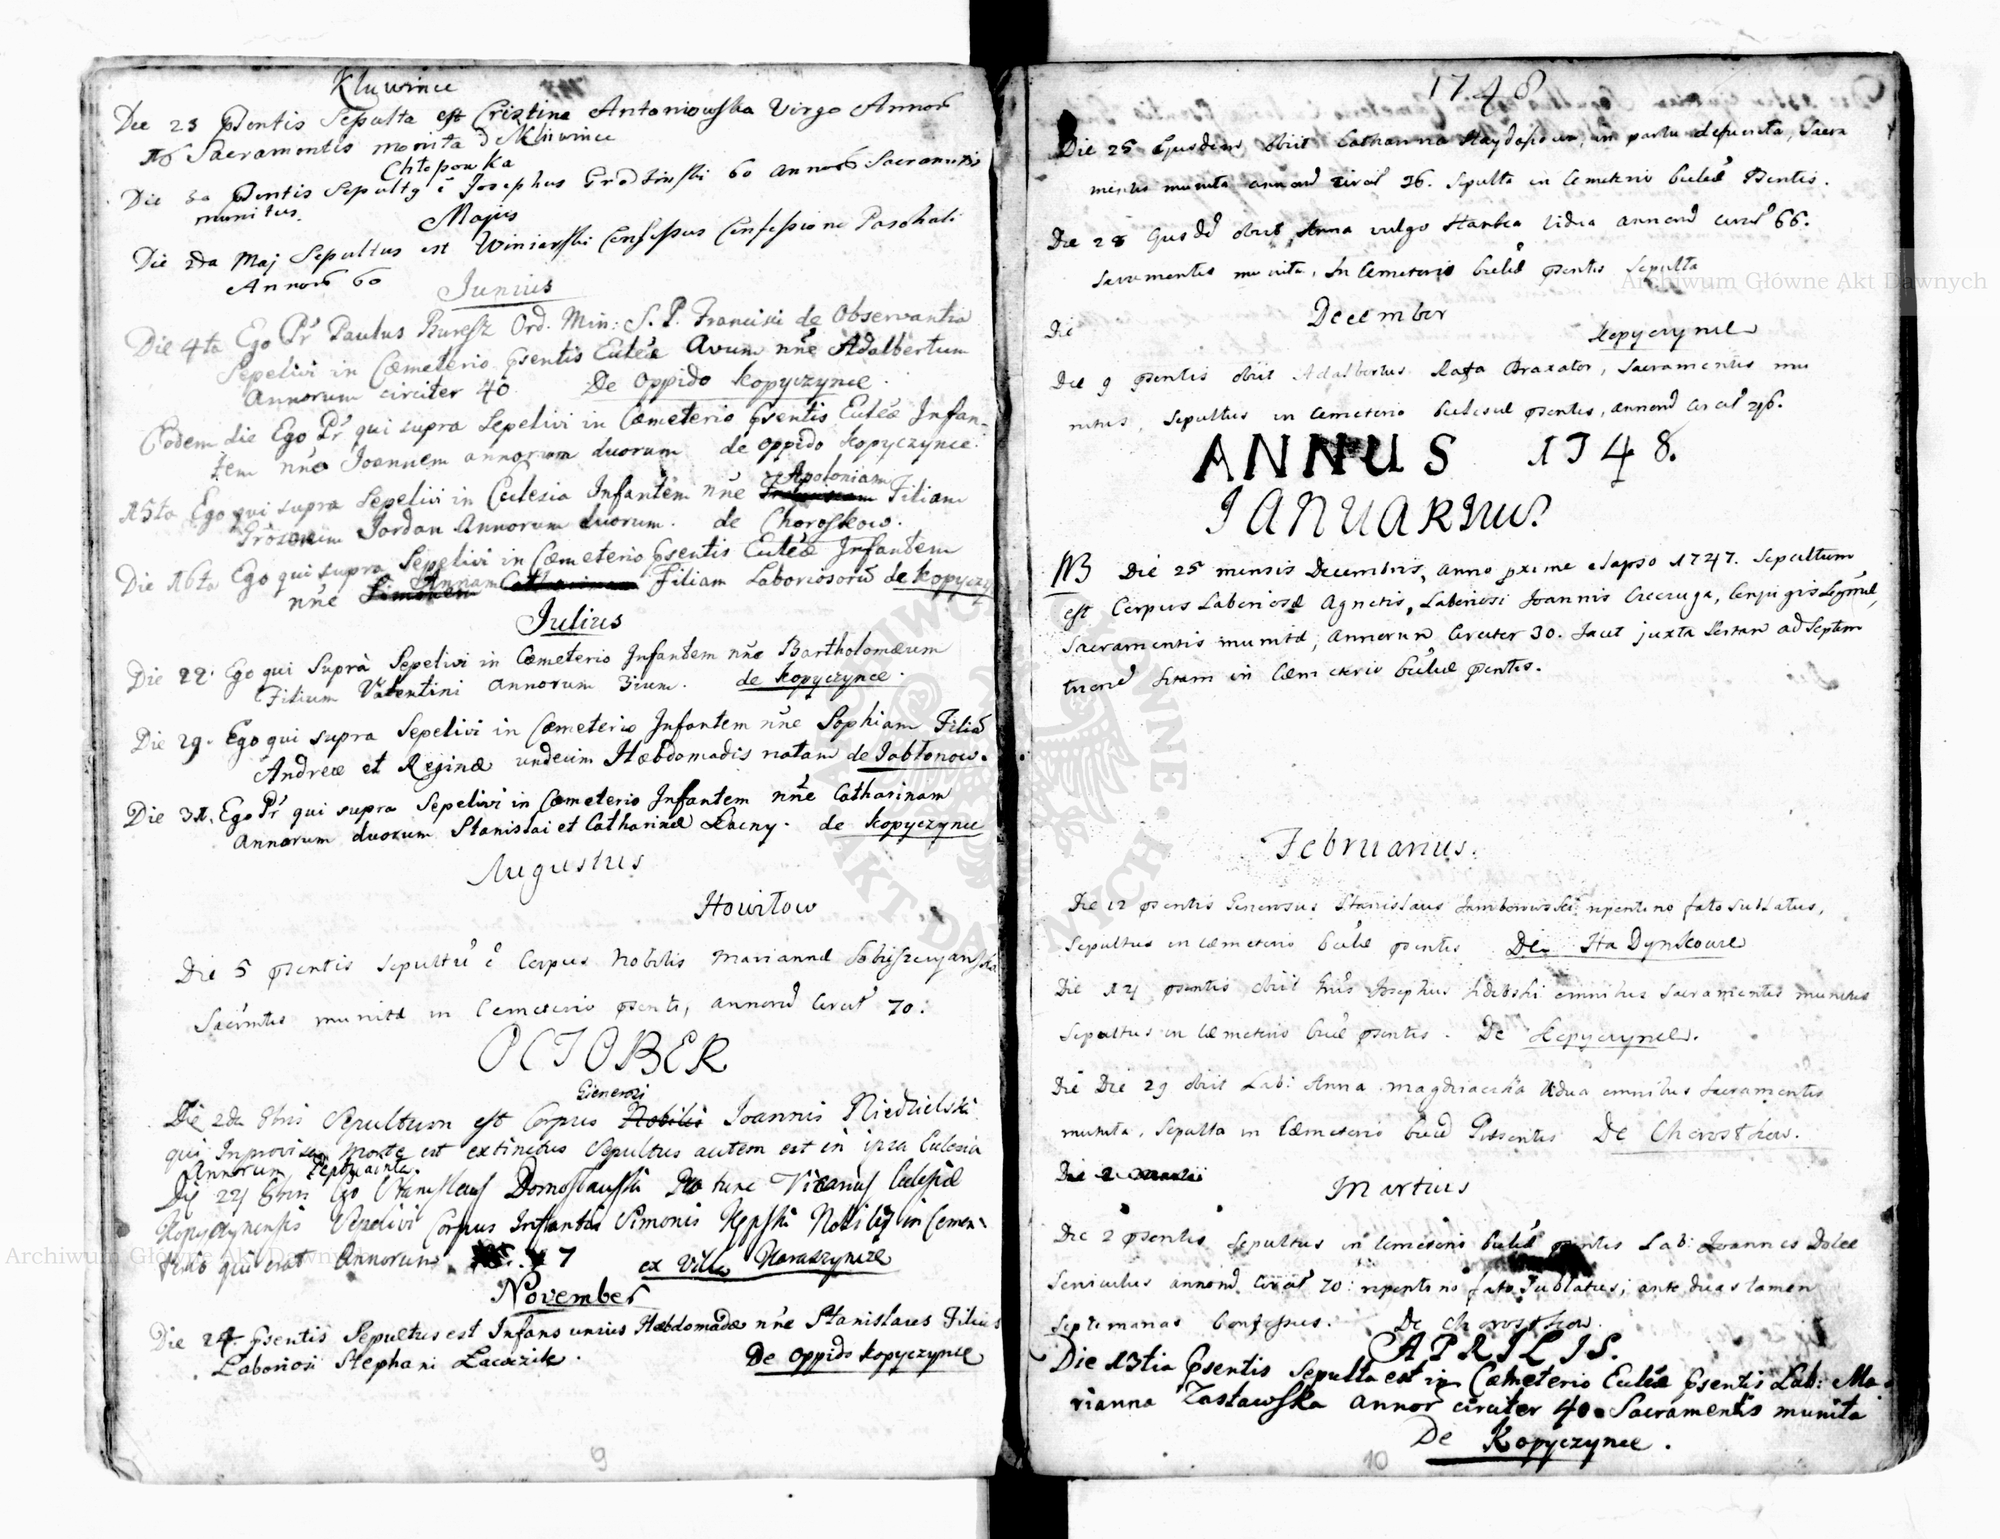 Kluwince
Die 23 Psentis Sepulta est Cristina Antoniowska Virgo Annorū
16 Sacramentis munita d Kluwince
Chłopowka
Die 3a Psentis Sepultg ē Josephus Grodzinski 60 annorū Sacramētis
munitus.
Majus
Die 2da Maj Sepultus est Winiarski Confessus Confessione Paschali
Annorū 60
Junius
Die 4ta Ego Pr Paulus Ord. Min: S. P. Francisci de Observantia
Sepelivi in Cæmeterio Psentis Eccleæ Avum nñe Adalbertum
Annorum circiter 40 De Oppido Kopyczynce.
Eodem die Ego Pr qui supra Sepelivi in Cæmeterio Psentis Eccleæ Infan-
tem nñe Joannem annorum duorum de oppido Kopyczynce.
Apoloniam
15ta Ego qui supra Sepelivi in Eclesia Infantem nñe Filiam
Jordan Annorum duorum. de Choroskow.
Die 16ta Ego qui supra Sepelivi in Cæmeterio Psentis Eccleæ Infantem
nñe Simonem Annam Catharinam Filiam Laboriosorū de Kopyczy
Julius
Die 22. Ego qui Supra Sepelivi in Cæmeterio Infantem nñe Bartholomæum
Filium Valentini annorum 3ium. de Kopyczynce.
Die 29. Ego qui supra Sepelivi in Cæmeterio Infantem nñe Sophiam Filiā
Andreæ et Reginæ undecim Hæbdomadis natam de Jabłonow.
Die 31. Ego Pr qui supra Sepelivi in Cæmeterio Infantem nñe Catharinam
Annorum duorum Stanislai et Catharinæ Łacny. de Kopyczynce
Augustus
Howiłow
Die 5 psentis sepultū ē Corpus Nobilis Mariannæ
munitæ in Cemeterio psenti, annorū circit 70.
OCTOBER
Generosi
Die 2da 8bris Sepultum est Corpus Nobilis Joannis Niedzielski
qui Improvisa morte est extinctus Sepultus autem est in ipsa Eclesia
Annorum Septuaginta.
Die 22 8bris Ego Stanislaus Domosławski tunc Vicarius Eclesiæ
Kopyczynensis Sepelivi Corpus Infantis Simonis Kępski Nobilis in Ceme-
terio qui erat Annorum 7 ex Villa Haraszynce
November
Die 24. Psentis Sepultus est Infans unius Hæbdomadæ nñe Stanislaus Filius
Laboriosi Stephani De Oppido Kopyczynce
9
1748
Die 25 Ejusdem obiit Catharina in partu defuncta, Sacra
mentis munita annorū circit 26. Sepulta in Cemeterio Eccleæ Psentis.
Die 28 Ejusdē obiit Anna vulgo Hanka Vidua annorū circit 66.
Sacramentis munita, In Cemeterio Eccleæ psentis Sepulta
December
Die Kopyczynce
Die 9 psentis obiit Adalbertus Braxator, Sacramentis mu
nitus, Sepultus in Cemeterio psentis, annorū circit
ANNUS 1748.
IANUARIUS.
NB Die 25 mensis Decembris, anno proxime elapso 1747. Sepultum
est Corpus Laboriosæ Agnetis, Laboriosi Joannis conjugis
Sacramentis munitæ, Annorum Circiter 30. Jacet juxta Portam ad Septem
sitam in Cæmeterio Eccleæ psentis.
Februarius.
Die 12 psentis Generosus Stanislaus repentino fato sublatus,
Sepultus in Cæmeterio Eccleæ psentis. De
Die 14 psentis obiit Josephus omnibus Sacramentis munitus
Sepultus in Cæmeterio psentis. De Kopyczynce.
Die Die 29 obiit Lab: Anna Vidua omnibus Sacramentis
munita, Sepulta in Cæmeterio Præsentis De Chorostkow.
Die 2 Martii
Martius
Die 2 psentis Sepultus in Cemeterio Eccleæ psentis Lab: Joannes
annorū circit 70. repentino fato Sublatus, ante duas tamen
Septimanas Confessus. De Chorostkow.
APRILIS.
Die 13tia Psentis Sepulta est in Cæmeterio Eccleæ Psentis Lab: Ma-
rianna Zastawska annor circiter 40. Sacramentis munita
De Kopyczynce.
10
Archiwum Główne Akt Dawnych
Archiwum Główne Akt Dawnych
ARCHIWUM GŁÓWNE AKT DAWNYCH